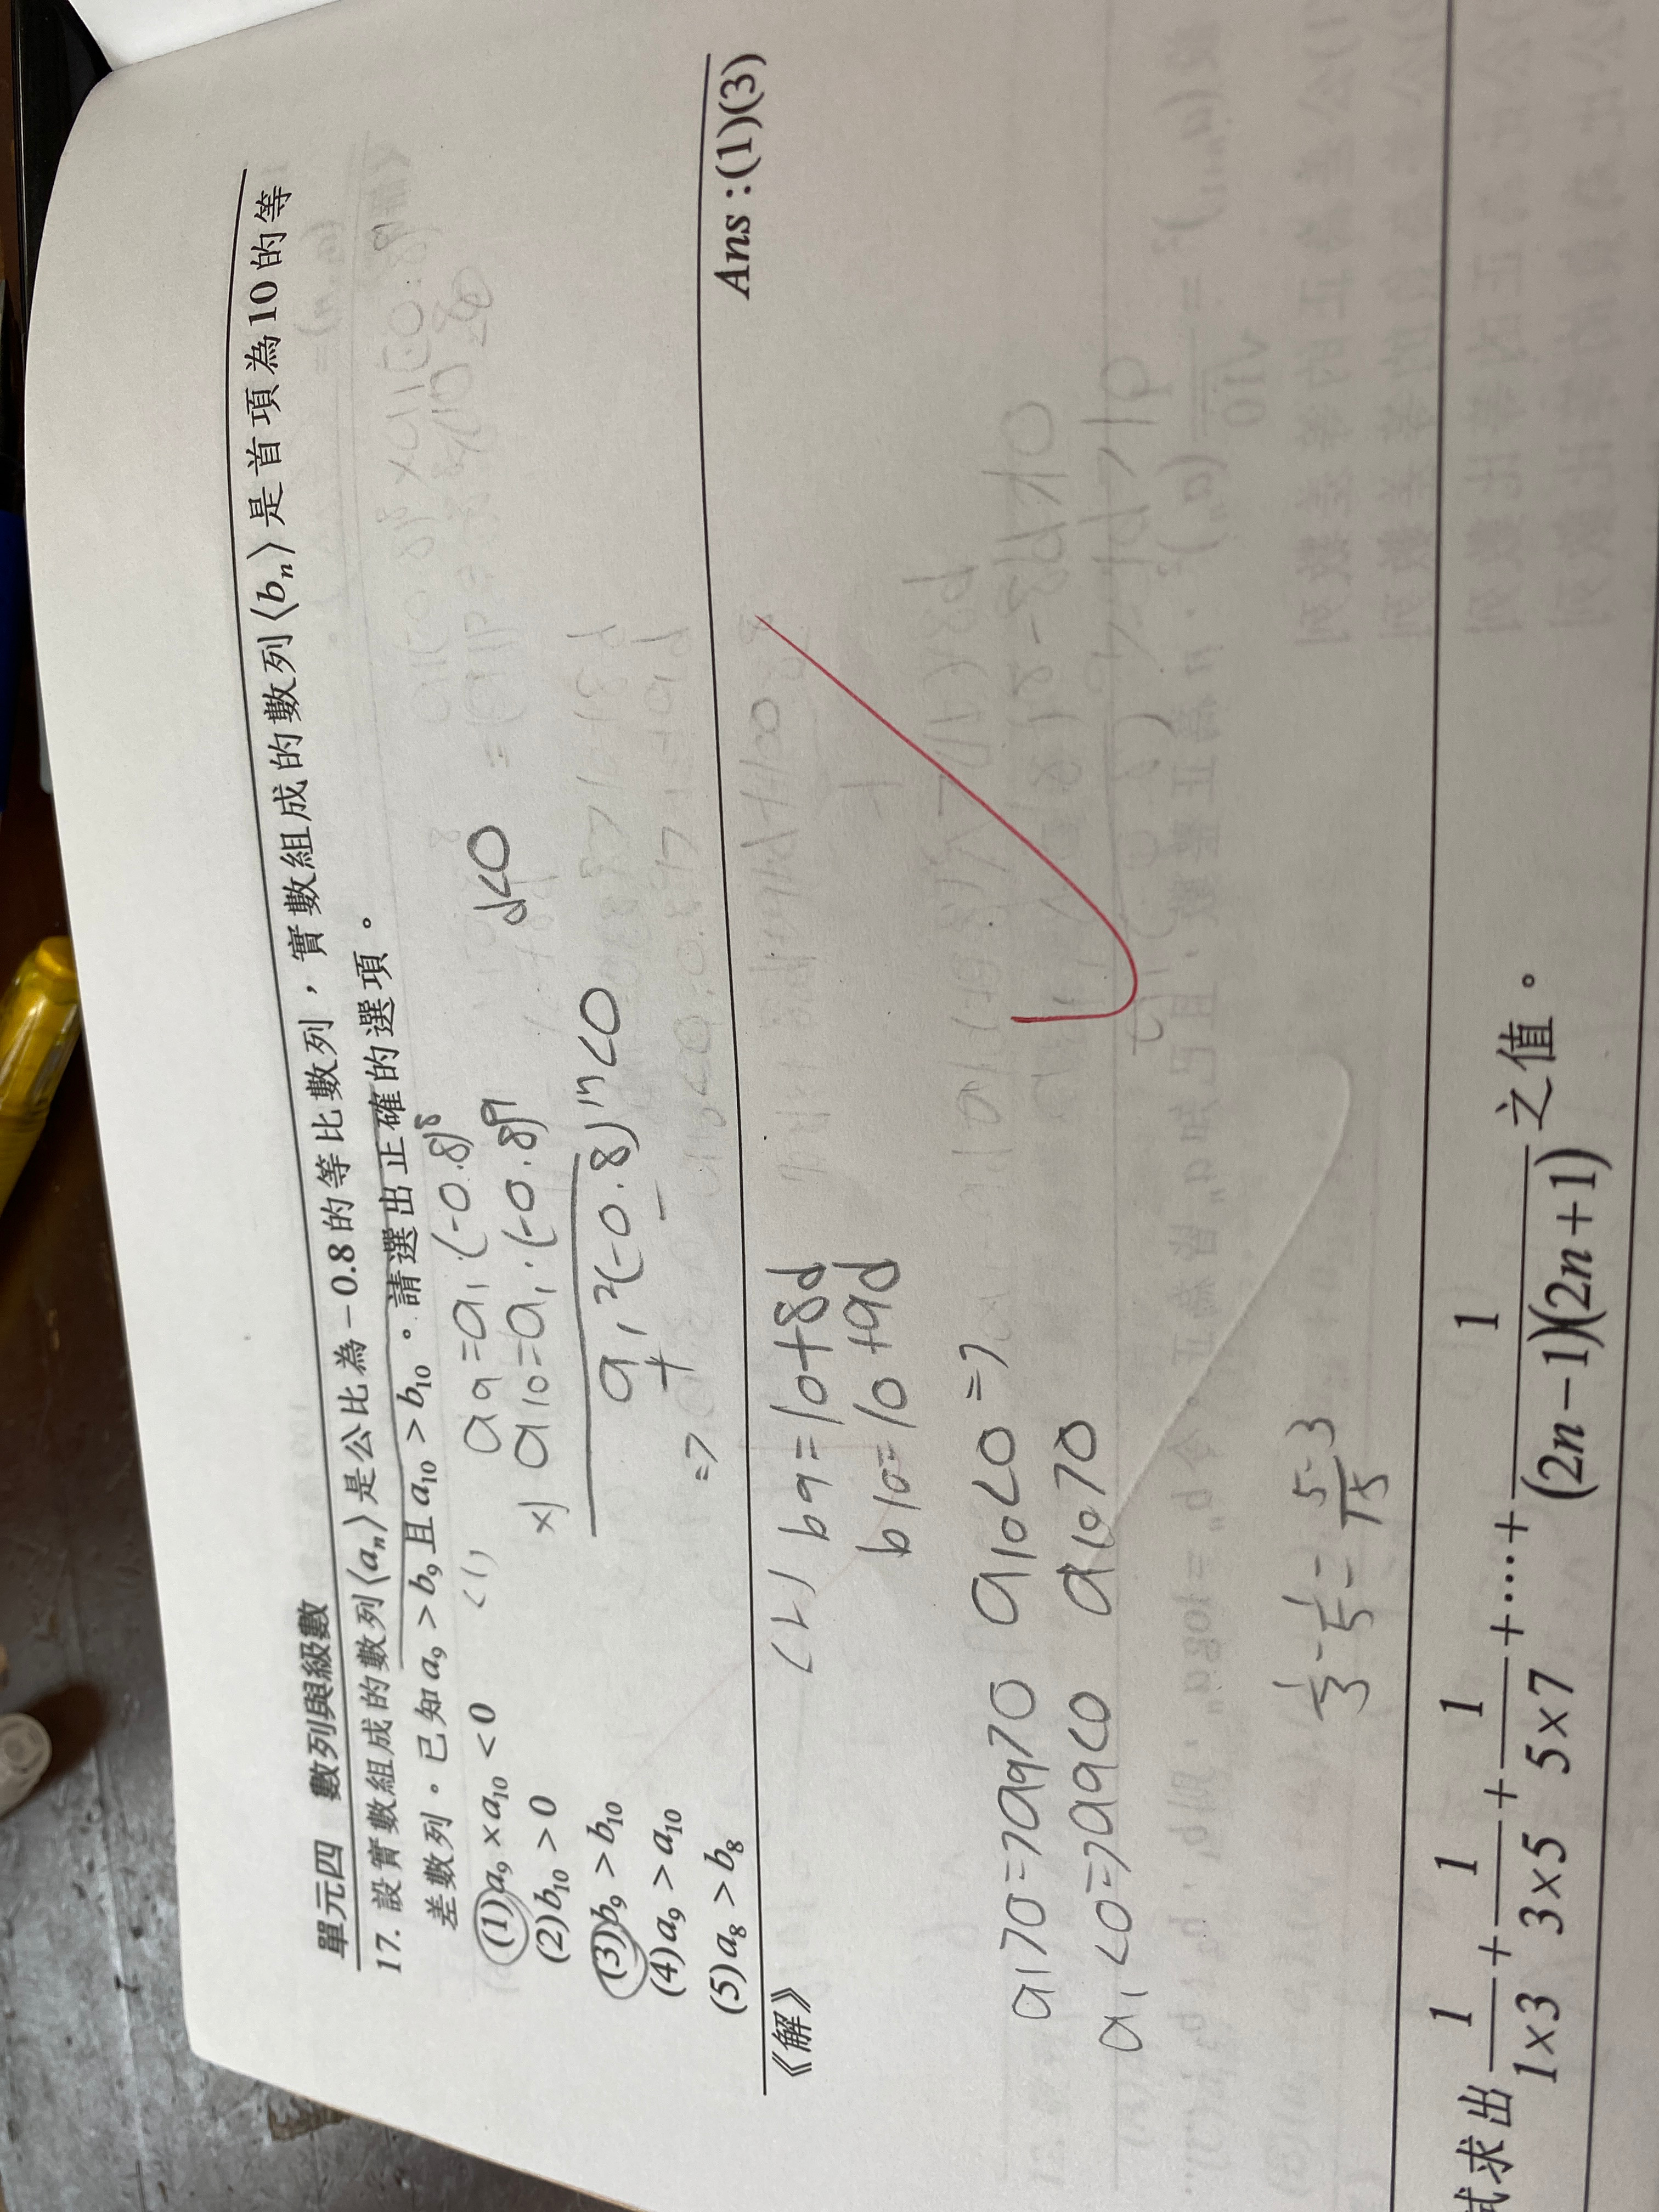 單元四 數列與級數
17. 設實數組成的數列⟨aₙ⟩是公比為−0.8的等比數列，實數組成的數列⟨bₙ⟩是首項為10的等
差數列。已知a₉ > b₉且a₁₀ > b₁₀。請選出正確的選項。
(1)a₉×a₁₀ < 0
(2)b₁₀ > 0
(3)b₉ > b₁₀
(4)a₉ > a₁₀
(5)a₈ > b₈
(1) a₉=a₁·(-0.8)⁸
x) a₁₀=a₁·(-0.8)⁹
a₁²(-0.8)¹⁷<0
+ −
=>
d<0
Ans:(1)(3)
《解》
(2) b₉=10+8d
b₁₀=10+9d
a₁>0=>a₉>0 a₁₀<0 =>
a₁<0=>a₉<0 a₁₀>0
1/3 - 1/5 = 5-3/15
試求出 1/1×3 + 1/3×5 + 1/5×7 + ⋯ + 1/(2n−1)(2n+1) 之值。